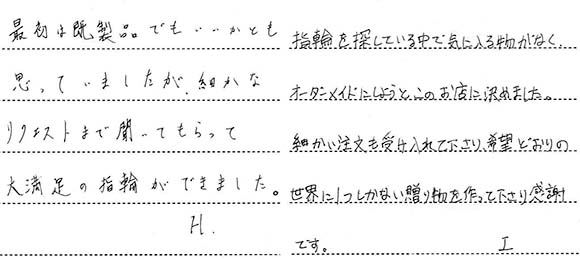 最初は既製品でもいいかとも
思っていましたが、細かな
リクエストまで聞いてもらって
大満足の指輪ができました。
H.
指輪を探している中で気に入る物がなく、
オーダーメイドにしようと、このお店に決めました。
細かい注文も受け入れて下さり、希望どおりの
世界に1つしかない贈り物を作って下さり感謝
です。
I